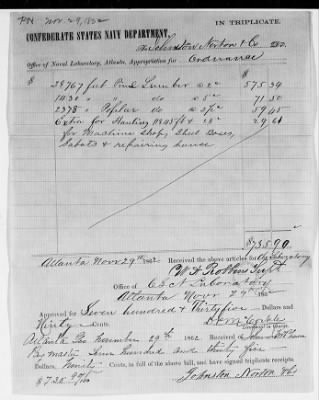 PN Nov. 29, 1862
IN TRIPLICATE.
CONFEDERATE STATES NAVY DEPARTMENT,
To Johnston Norton & Co DR.
Office of Naval Laboratory, Atlanta, Appropriation for Ordnance
$ $
28767 feet Pine Lumber @ 2¢ 575.39
1430 " " do @ 5¢ 71.50
2378 " Poplar do @ 2½¢ 59.45
Extra for Planing
for Machine Shop, Shot Boxes,
Sabots & repairing house
$735.90
Atlanta Novr 29th 1862 Received the above articles for Laboratory
Robbins Supt
Office of C S N Laboratory
Atlanta Novr 29th 1862
Approved for Seven hundred & Thirty five Dollars and
Ninety Cents.
Commandant in Charge.
Atlanta Geo November 29th 1862 Received of
Paymaster Seven hundred and thirty five Dollars
Ninety Cents, in full of the above bill, and have signed triplicate receipts.
$735 90/100 Johnston Norton & Co